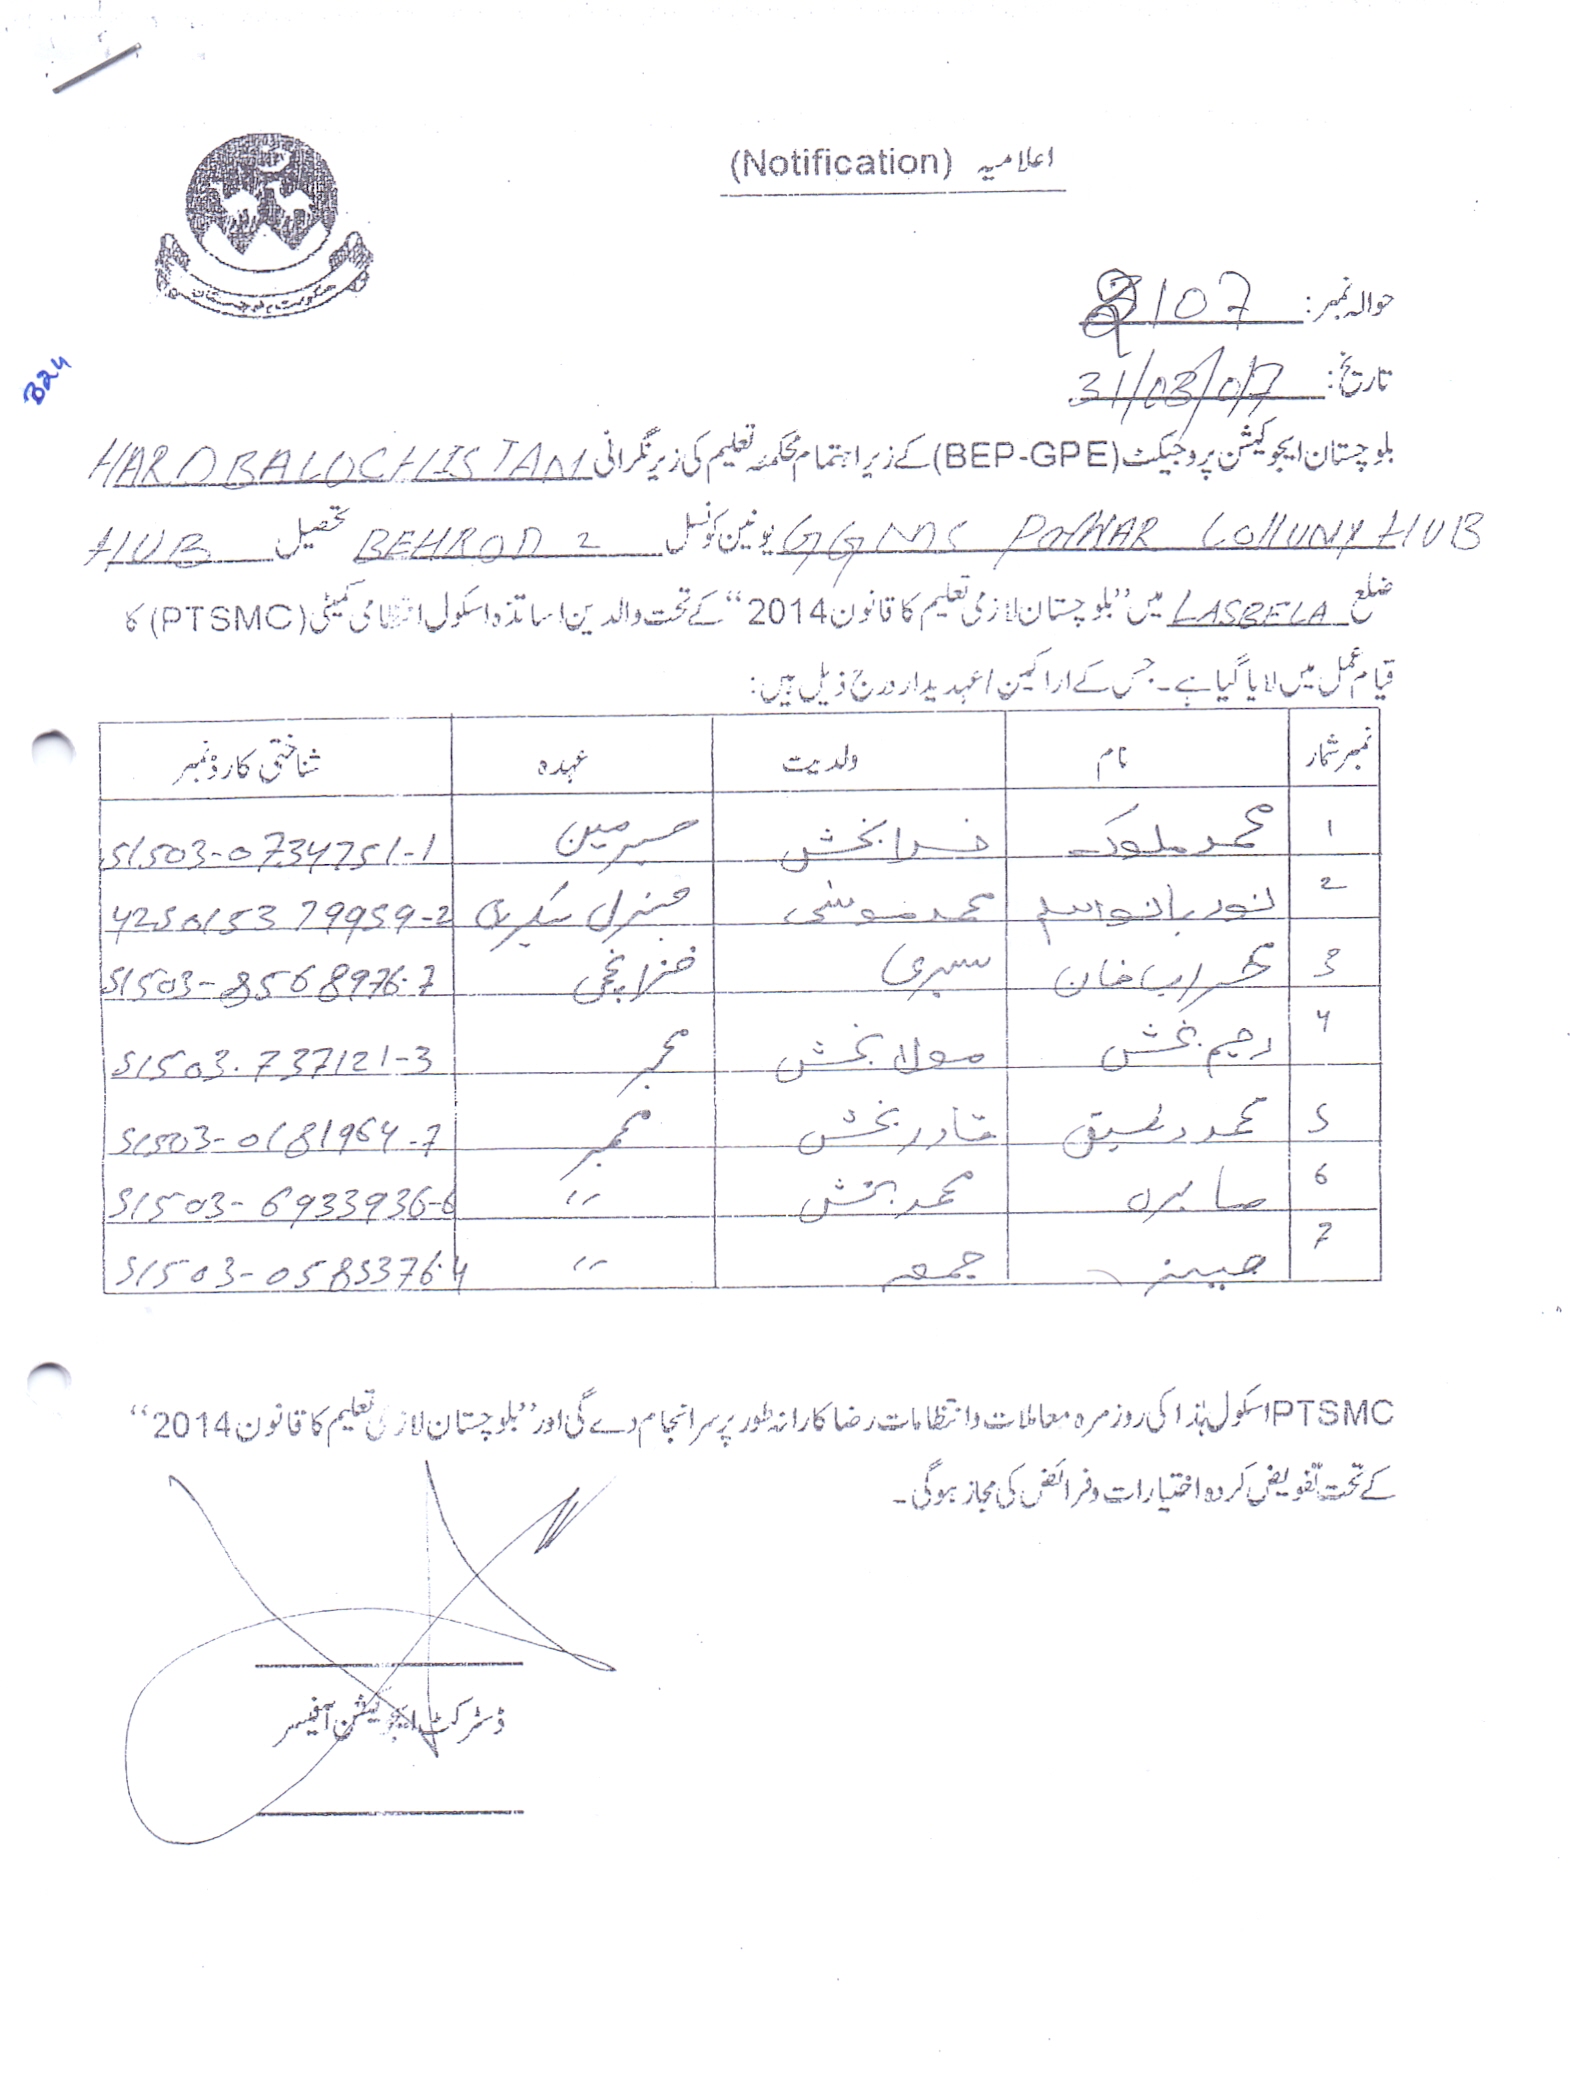 اعلامیہ (Notification)
حکومت بلوچستان
حوالہ نمبر: 107
تاریخ: 31/03/017
B24
بلوچستان ایجوکیشن پروجیکٹ (BEP-GPE) کے زیر اہتمام محکمہ تعلیم کی زیر نگرانی HARD BALOCHISTAN
GGMS POWAR COLLUNY HUB یونین کونسل BEHROD 2 تحصیل HUB
ضلع LASBELA میں "بلوچستان لازمی تعلیم کا قانون 2014" کے تحت والدین اساتذہ اسکول انتظامی کمیٹی (PTSMC) کا
قیام عمل میں لایا گیا ہے۔ جس کے اراکین / عہدیدار درج ذیل ہیں:
نمبر شمار نام ولدیت عہدہ شناختی کارڈ نمبر
1 محمد ملوک خدا بخش چیرمین 51503-0734751-1
2 نور بانو محمد موسٰی جنرل سیکریٹری 4250153 79959-2
3 محراب خان سبزی خزانچی 51503-8568976-7
4 رحیم بخش مولا بخش ممبر 51503.737121-3
5 محمد رفیق قادر بخش ممبر 51503-0181964-7
6 صابرہ محمد بخش " 51503-6933936-6
7 جمعہ " 51503-0585376-4
PTSMC اسکول ہٰذا کی روزمرہ معاملات و انتظامات رضا کارانہ طور پر سرانجام دے گی اور "بلوچستان لازمی تعلیم کا قانون 2014"
کے تحت تفویض کردہ اختیارات و فرائض کی مجاز ہوگی۔
ڈسٹرکٹ ایجوکیشن آفیسر